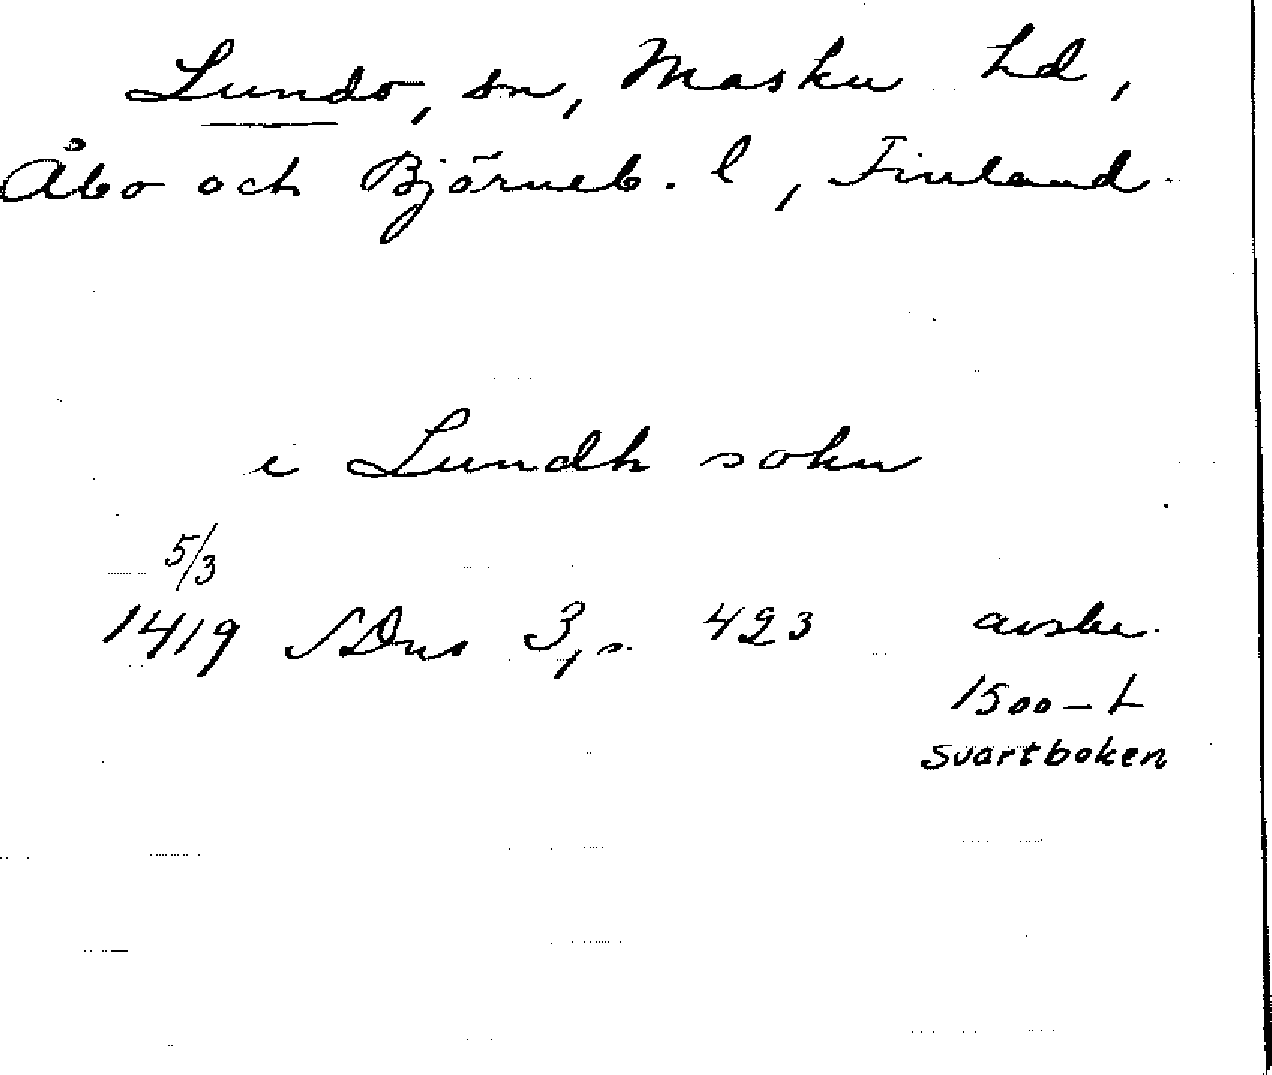 Lundo, sn, Masku hd,
Åbo och Björneb. l, Finland.
i Lundh sokn
5/3
1419 SDns 3, s. 423 avskr.
1500-t
svartboken